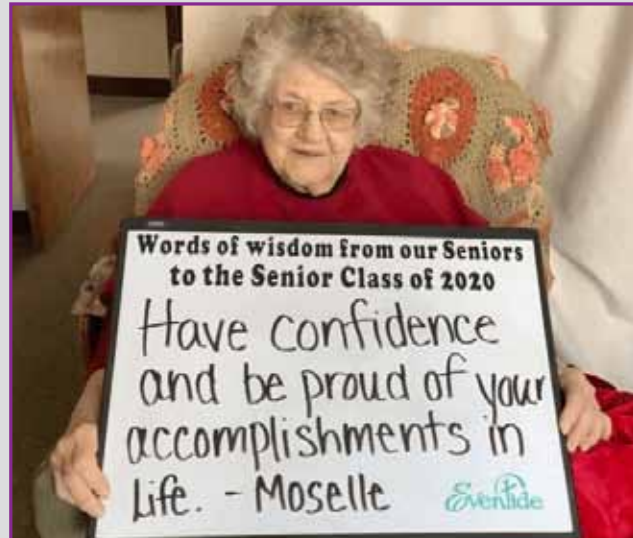 Words of wisdom from our Seniors
to the Senior Class of 2020
Have confidence
and be proud of your
accomplishments in
Life. - Moselle
Eventide